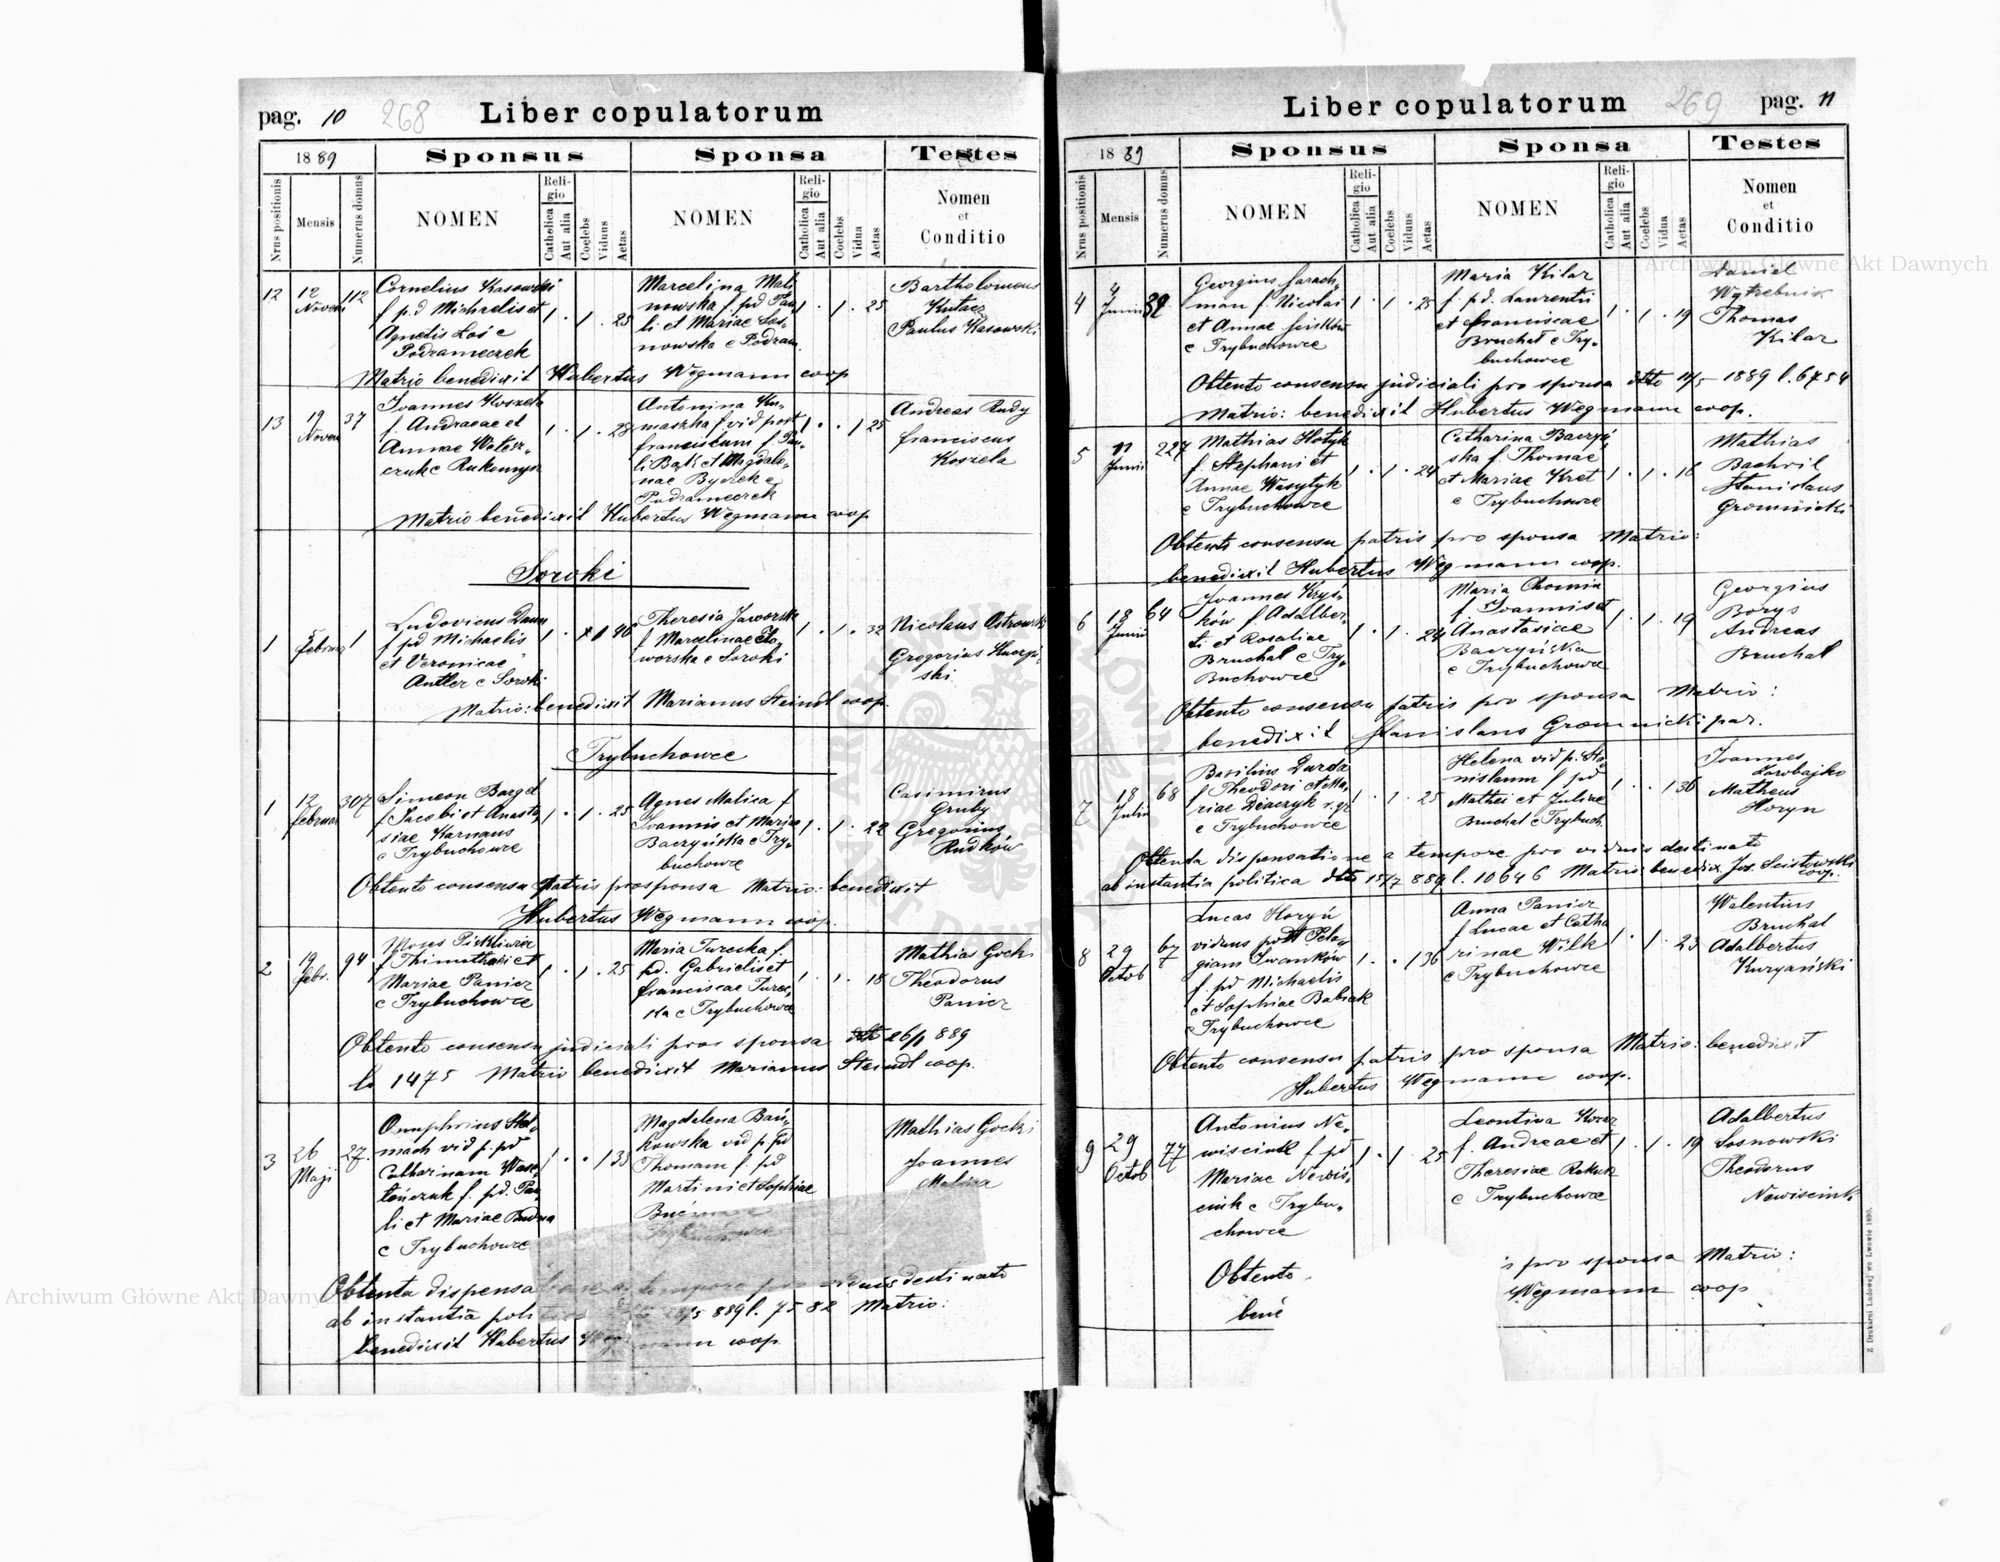 pag. 10 268 Liber copulatorum
1889 Sponsus Sponsa Testes
Nrus positionis Mensis Numerus domus NOMEN Religio Catholica Aut alia Coelebs Viduus Aetas NOMEN Religio Catholica Aut alia Coelebs Vidua Aetas Nomen et Conditio
12 12 Novem 112 1 . 1 . 25 1 . 1 . 25
Cornelius Kasowski
f. pd Michaelis et
Agnetis Łoś e
Podzameczek
Marcelina Mali
nowska f. pd Pau
li et Mariae Sos-
nowska e Podzam.
Bartholomeus
Kutacz
Paulus Kasowski
Matrio benedixit Hubertus Wegmann coop
13 19 Novem 37 1 . 1 . 28 1 . . 1 25
Joannes Koszela
f. Andraeae et
Annae
czuk e Rukomysz
Antonina Ku-
maszka f vid post
Franciscum f. Pau
li Bąk et Magdale-
nae Byczek e
Podzameczek
Andreas Rudy
Franciscus
Koszela
Matrio benedixit Hubertus Wegmann coop
Soroki
1 Februar 1 1 . 1 40 1 . 1 . 32
Ludovicus Daun
f pd Michaelis
et Veronicae
Antler e Soroki
Theresia Jaworska
f Marcelinae Ja-
worska e Soroki
Nicolaus Ostrowski
Gregorius
ski
Matrio: benedixit Marianus Steindl coop.
Trybuchowce
1 12 Februar 307 1 . 1 . 25 1 . 1 . 22
Simeon Bargel
f Jacobi et Anasta
siae Karnaus
e Trybuchowce
Agnes Malica f
Joannis et Mariae
Baczyńska e Try-
buchowce
Casimirus
Gruby
Gregorius
Rudków
Obtento consensu patris pro sponsa Matrio: benedixit
Hubertus Wegmann coop.
2 19 Febr. 94 1 . 1 . 25 1 . 1 . 18
Moses
f Thimothaei et
Mariae Panicz
e Trybuchowce
Maria Turecka f.
pd. Gabrielis et
Franciscae Turec-
ka e Trybuchowce
Mathias Gocki
Theodorus
Panicz
Obtento consensu judiciali pro sponsa dtto 26/1 889
L. 1475 Matrio benedixit Marianus Steindl coop.
3 26 Maji 27. 1 . . 1 35
Onuphrius Stel-
mach vid p. pd
Catharinam Wasy-
f. pd. Pau
li et Mariae Budna
e Trybuchowce
Magdalena Bań-
kowska vid p. pd
Thomam f. pd
Martini et Sophiae
Trybuchowce
Mathias Gocki
Joannes
Malica
Obtenta dispensatione a tempore pro viduis destinato
ab instantia politica dtto 889 l. 7582 Matrio:
benedixit Hubertus Wegmann coop.
Liber copulatorum 269 pag. 11
1889 Sponsus Sponsa Testes
Nrus positionis Mensis Numerus domus NOMEN Religio Catholica Aut alia Coelebs Viduus Aetas NOMEN Religio Catholica Aut alia Coelebs Vidua Aetas Nomen et Conditio
4 4 Junii 39 1 . 1 . 25 1 . 1 . 19
Georgius Harach-
man f. Nicolai
et Annae
e Trybuchowce
Maria Kilar
f. pd. Laurentii
et Franciscae
Bruchal e Try-
buchowce
Daniel
Thomas
Kilar
Obtento consensu judiciali pro sponsa dtto 11/5 1889 l. 6754
Matrio: benedixit Hubertus Wegmann coop.
5 11 Junii 227 1 . 1 . 24 1 . 1 . 18
Mathias Hotyk
f. Stephani et
Annae Wasyłyk
e Trybuchowce
Catharina Baczyń
ska f. Thomae
et Mariae Kret
e Trybuchowce
Mathias
Stanislaus
Gromnicki
Obtento consensu patris pro sponsa Matrio:
benedixit Hubertus Wegmann coop.
6 18 Junii 64 1 . 1 . 24 1 . 1 . 19
Joannes Kryś-
ków f Adalber-
ti et Rosaliae
Bruchal e Try-
Buchowce
Maria Chomin
f. Joannis et
Anastasiae
Baczyńska
e Trybuchowce
Georgius
Borys
Andreas
Bruchal
Obtento consensu patris pro sponsa Matrio:
benedixit Stanislaus Gromnicki par.
7 18 Julii 68 1 . 1 . 25 1 . . 1 36
Basilius Durda
f Theodori et Ma-
riae Deaczyk r. gr
e Trybuchowce
Helena vid p. Sta-
nislaum f pd
Mathei et Juliae
Bruchal e Trybuch.
Joannes
Matheus
Horyn
Obtenta dispensatione a tempore pro viduis destinato
ab instantia politica dtto 15/7 889 l. 10646 Matrio: benedix. Jos. coop.
8 29 Octob 67 1 . . 1 36 1 . 1 . 23
Lucas Horyń
viduus post Pela-
giam Iwanków
f. pd Michaelis
et Sophiae Babiak
e Trybuchowce
Anna Panicz
f. Lucae et Catha
rinae Wilk
e Trybuchowce
Walentius
Bruchal
Adalbertus
Kuryański
Obtento consensu patris pro sponsa Matrio: benedixit
Hubertus Wegmann coop.
9 29 Octob 77 1 . 1 . 25 1 . 1 . 19
Antonius Ne-
wiscink f pd
Mariae Newiś-
cink e Trybu-
chowce
Leontina
f. Andreae et
Theresiae
e Trybuchowce
Adalbertus
Sosnowski
Theodorus
Newiscink
Obtento s pro sponsa Matrio:
bene Wegmann coop
Z Drukarni Ludowej we Lwowie 1890.
Archiwum Główne Akt Dawnych
Archiwum Główne Akt Dawnych